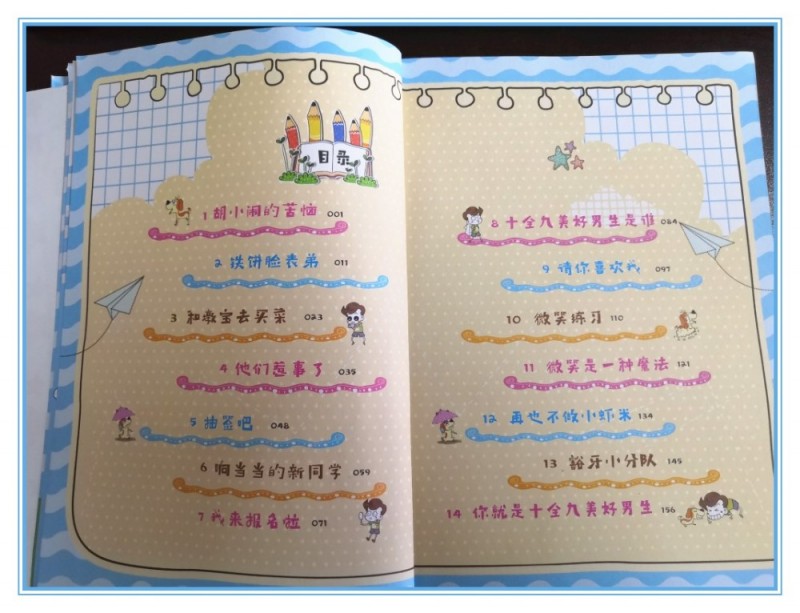 目录
1 胡小闹的苦恼 001
2 铁饼脸表弟 011
3 和激宝去买菜 023
4 他们惹事了 035
5 抽签吧 048
6 响当当的新同学 059
7 我来报名啦 071
8 十全九美好男生是谁 084
9 请你喜欢我 097
10 微笑练习 110
11 微笑是一种魔法 121
12 再也不做小虾米 134
13 豁牙小分队 145
14 你就是十全九美好男生 156